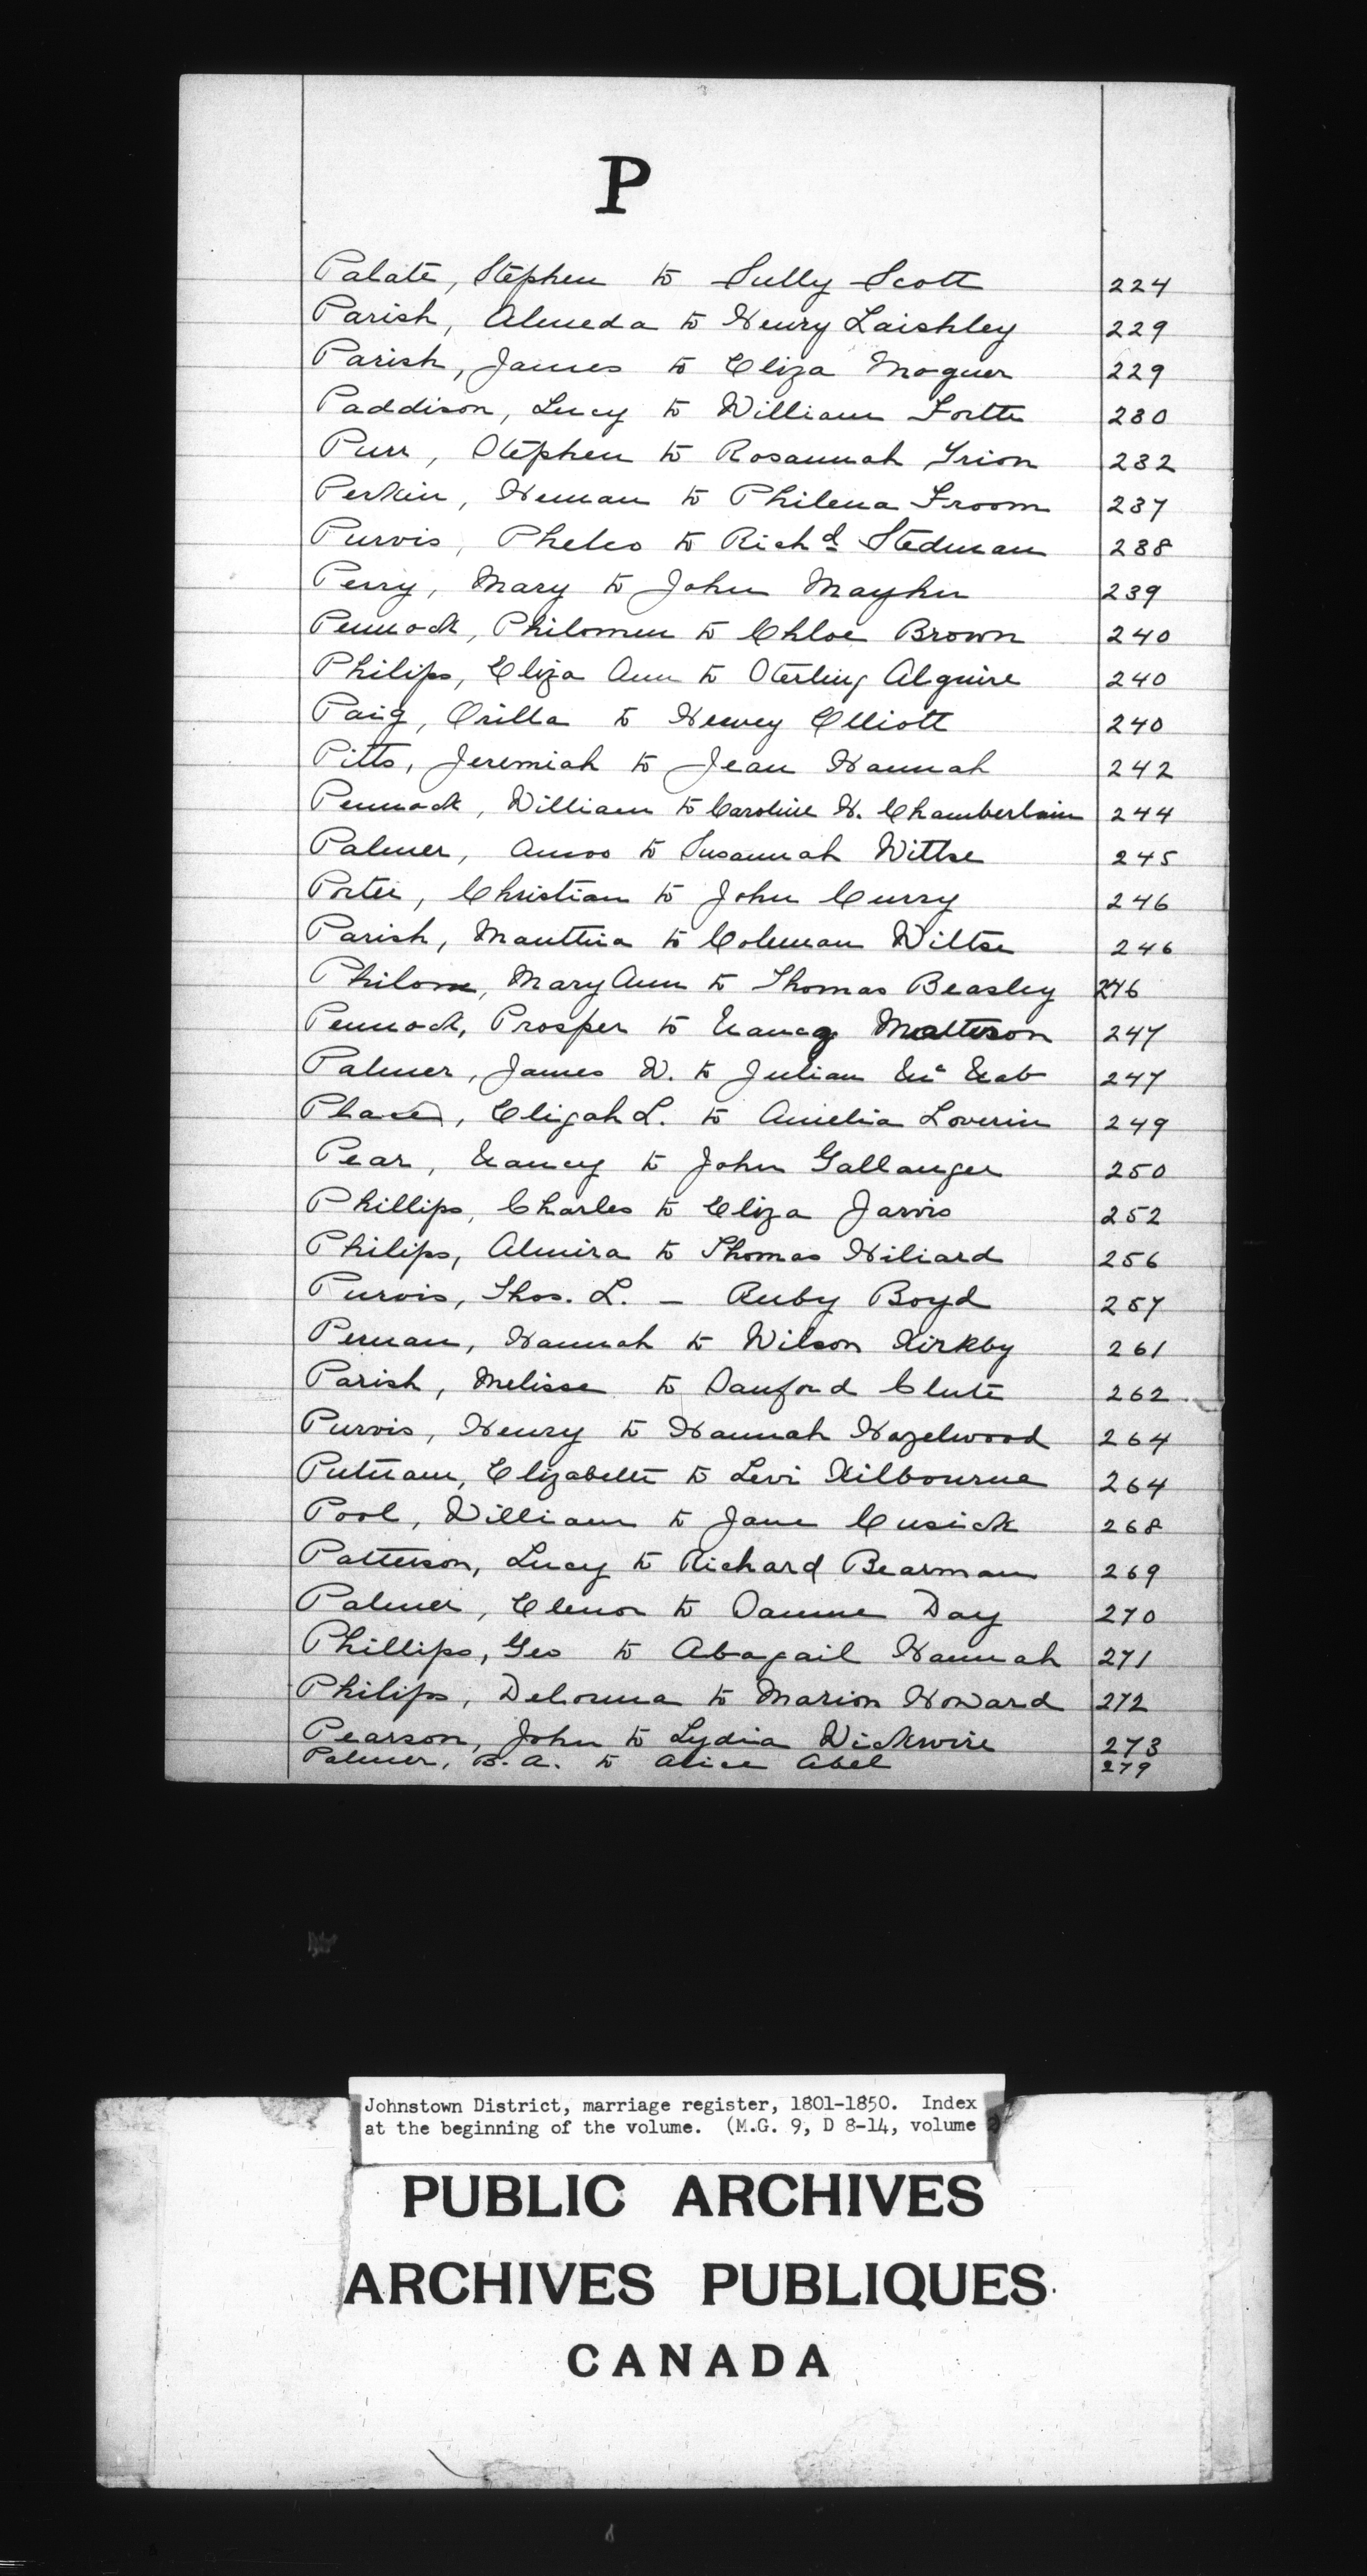 P
Palate, Stephen to Sully Scott 224
Parish, Almeda to Henry Laishley 229
Parish, James to Eliza Moquer 229
Paddison, Lucy to William Fortte 230
Purr, Stephen to Rosannah Yrion 232
Perkin, Heman to Philena Froom 237
Purvis, Pheleo to Richd Stedman 238
Perry, Mary to John Mayhu 239
Pennock, Philomen to Chloe Brown 240
Philips, Eliza Ann to Sterling Alguire 240
Paig, Orilla to Hewey Elliott 240
Pitts, Jeremiah to Jean Hannah 242
Pennock, William to Caroline H. Chamberlain 244
Palmer, Amos to Susannah Wiltse 245
Porter, Christian to John Curry 246
Parish, Manthia to Coleman Wiltse 246
Philom, Mary Ann to Thomas Beasley 246
Pennock, Prosper to Nancy Matteson 247
Palmer, James W. to Julian Mc Nab 247
Place, Elijah L. to Amelia Loverin 249
Pear, Nancy to John Gallanger 250
Phillips, Charles to Eliza Jarvis 252
Philips, Almira to Thomas Hiliard 256
Purvis, Thos. L. - Ruby Boyd 257
Pernan, Hannah to Wilson Kirkby 261
Parish, Melisse to Danford Clute 262
Purvis, Henry to Hannah Hazelwood 264
Putnam, Elizabeth to Levi Kilbourne 264
Pool, William to Jane Cusick 268
Patterson, Lucy to Richard Bearman 269
Palmer, Elenor to Damme Day 270
Phillips, Geo to Abagail Hannah 271
Philips, Delorma to Marion Howard 272
Pearson, John to Lydia Wickwire 273
Palmer, B. A. to Alice Abel 279
Johnstown District, marriage register, 1801-1850. Index
at the beginning of the volume. (M.G. 9, D 8-14, volume
PUBLIC ARCHIVES
ARCHIVES PUBLIQUES
CANADA